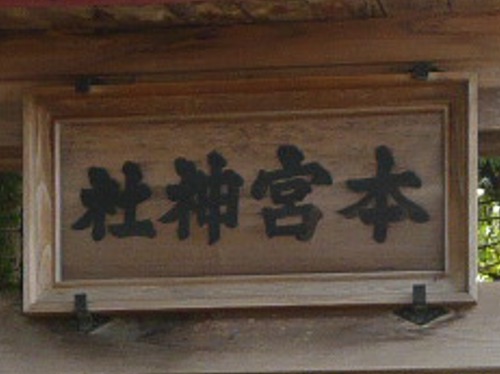 本宮神社